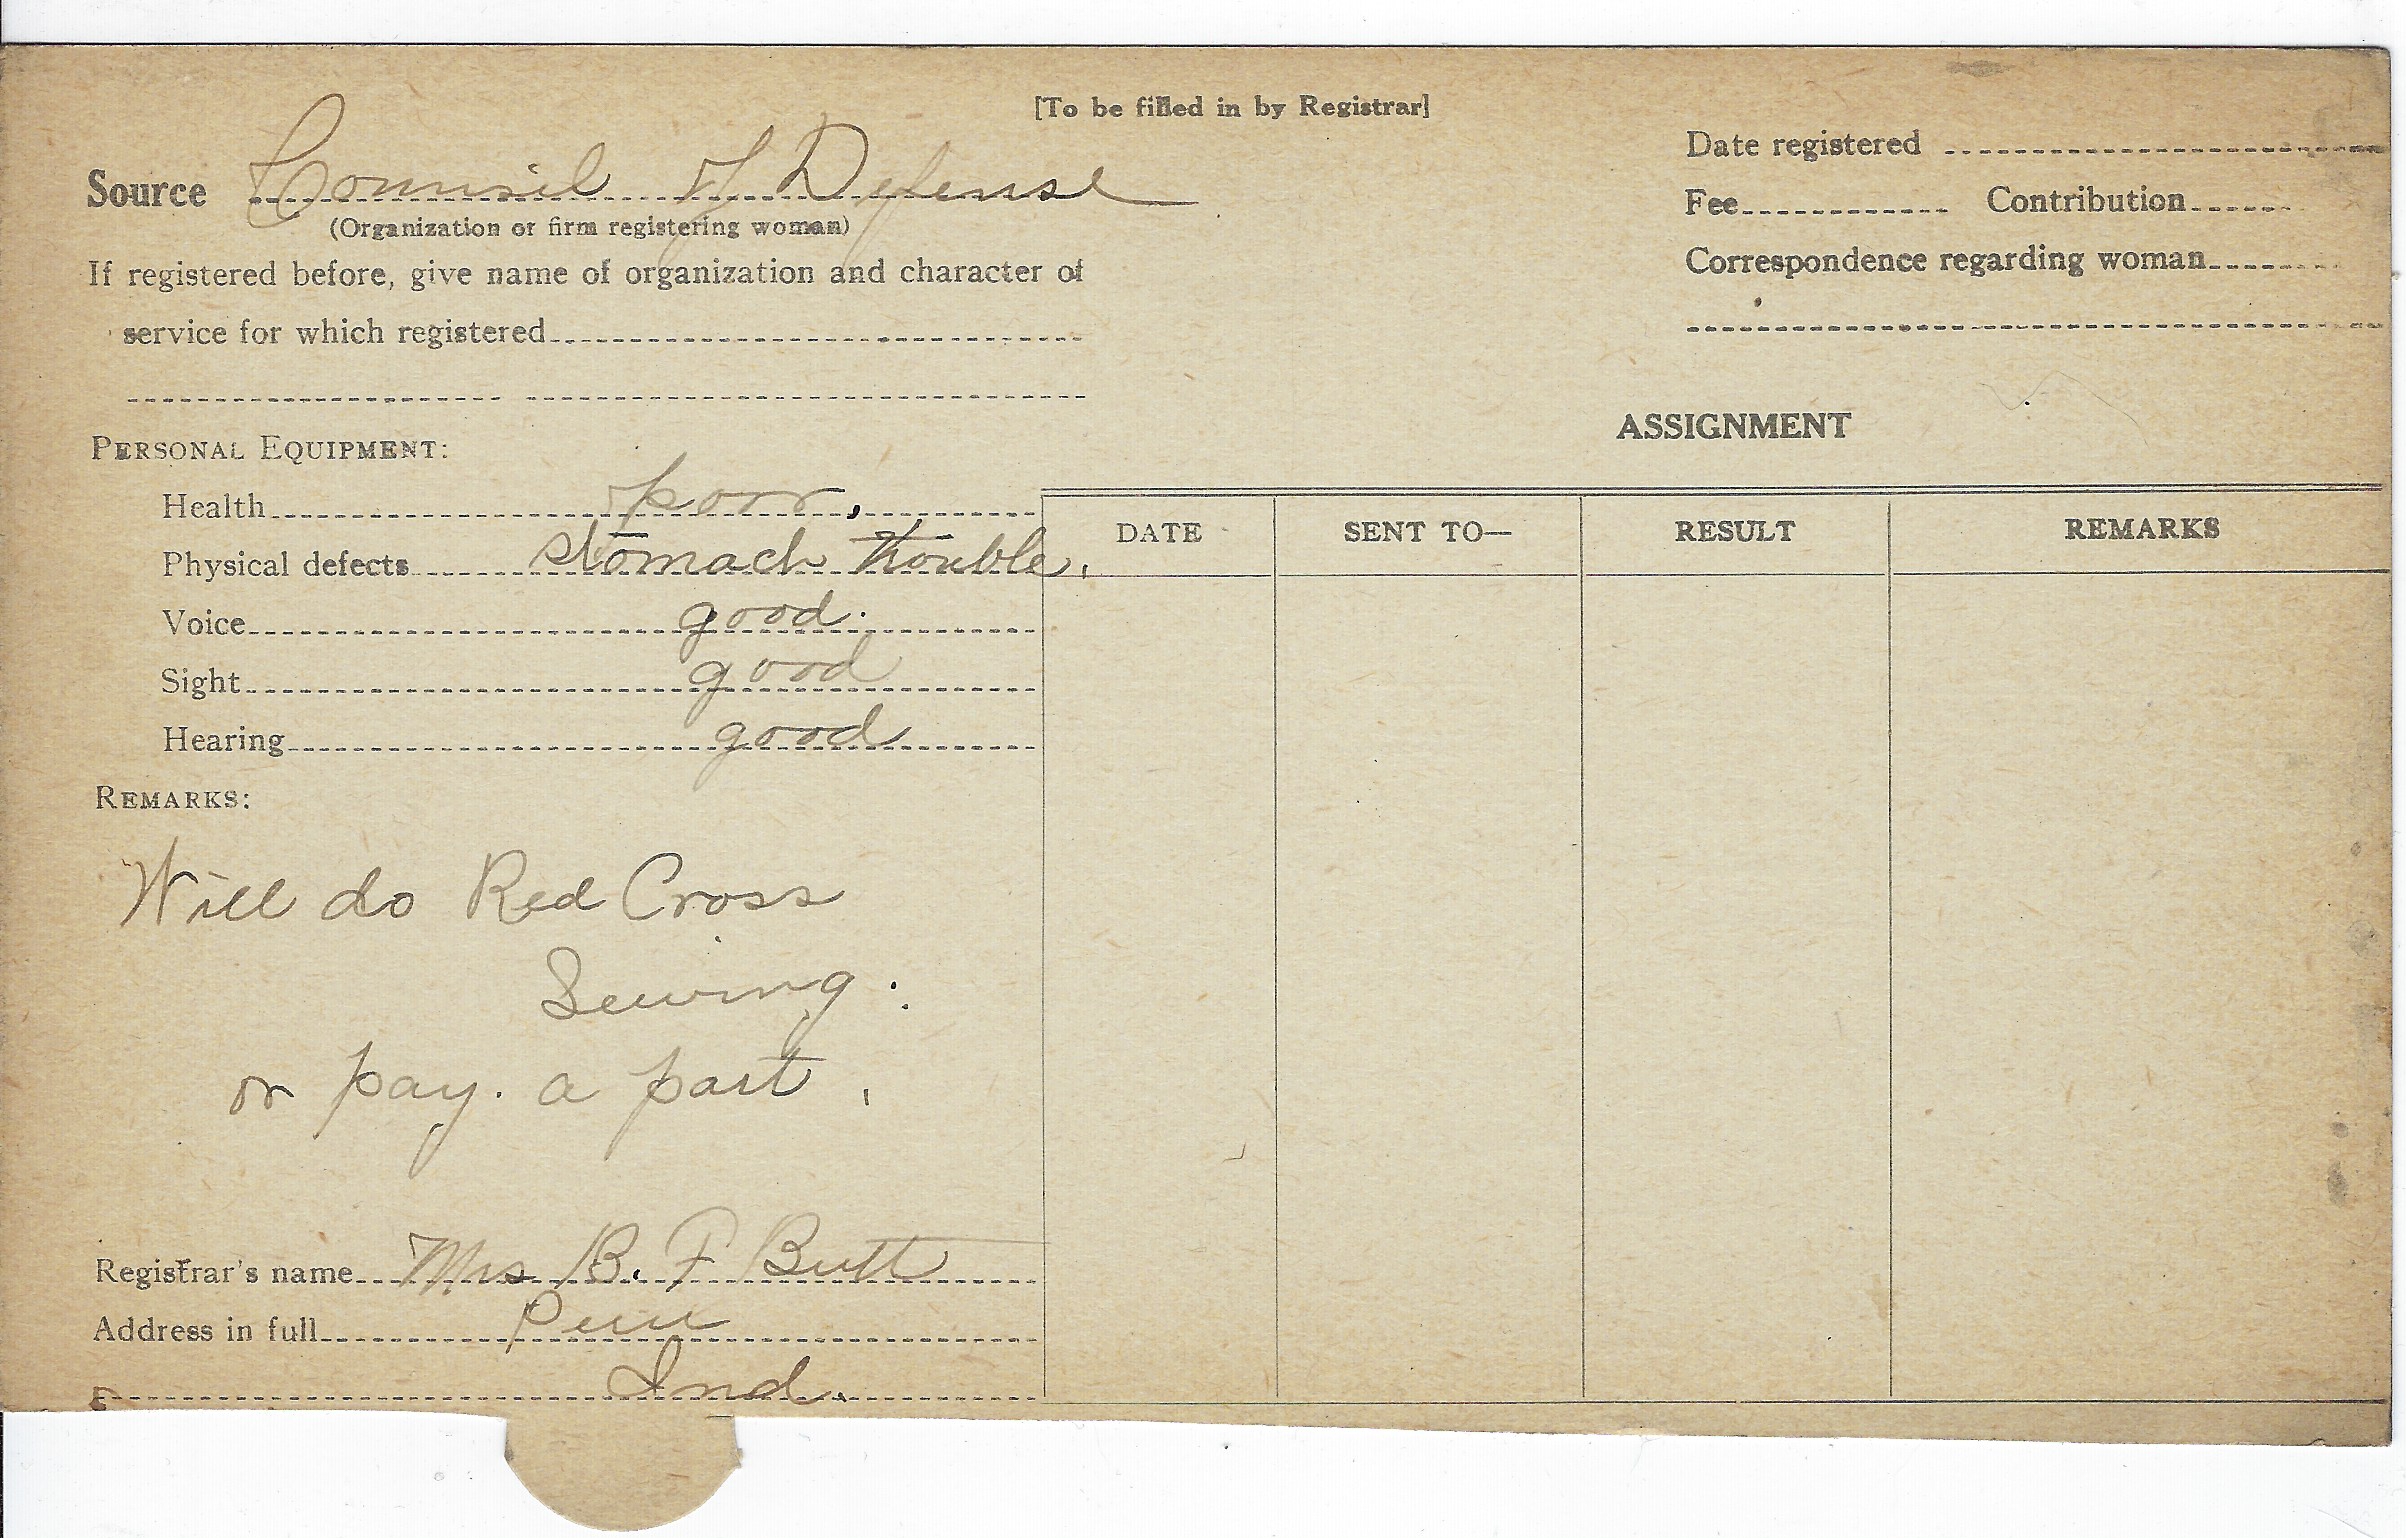 [To be filled in by Registrar]
Source Counsil of Defense
(Organization or firm registering woman)
If registered before, give name of organization and character of
service for which registered
Date registered
Fee Contribution
Correspondence regarding woman
ASSIGNMENT
PERSONAL EQUIPMENT:
Health poor.
Physical defects Stomach trouble.
Voice good.
Sight good
Hearing good
DATE SENT TO— RESULT REMARKS
REMARKS:
Will do Red Cross
Sewing.
or pay. a part.
Registrar's name Mrs B. F Butt
Address in full Peru
Ind.